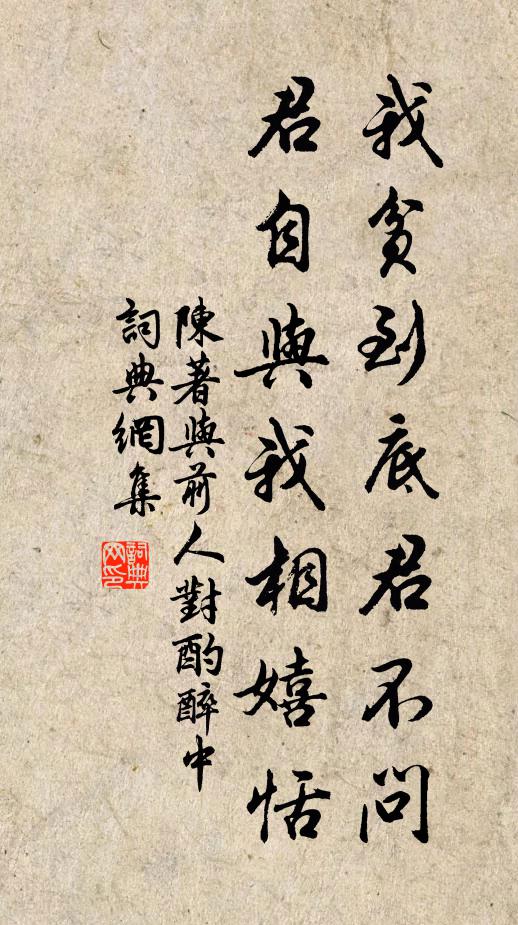 我貧到底君不問
君自與我相嬉恬
陳著與前人對酌醉中
詞典網集
詞典
网印